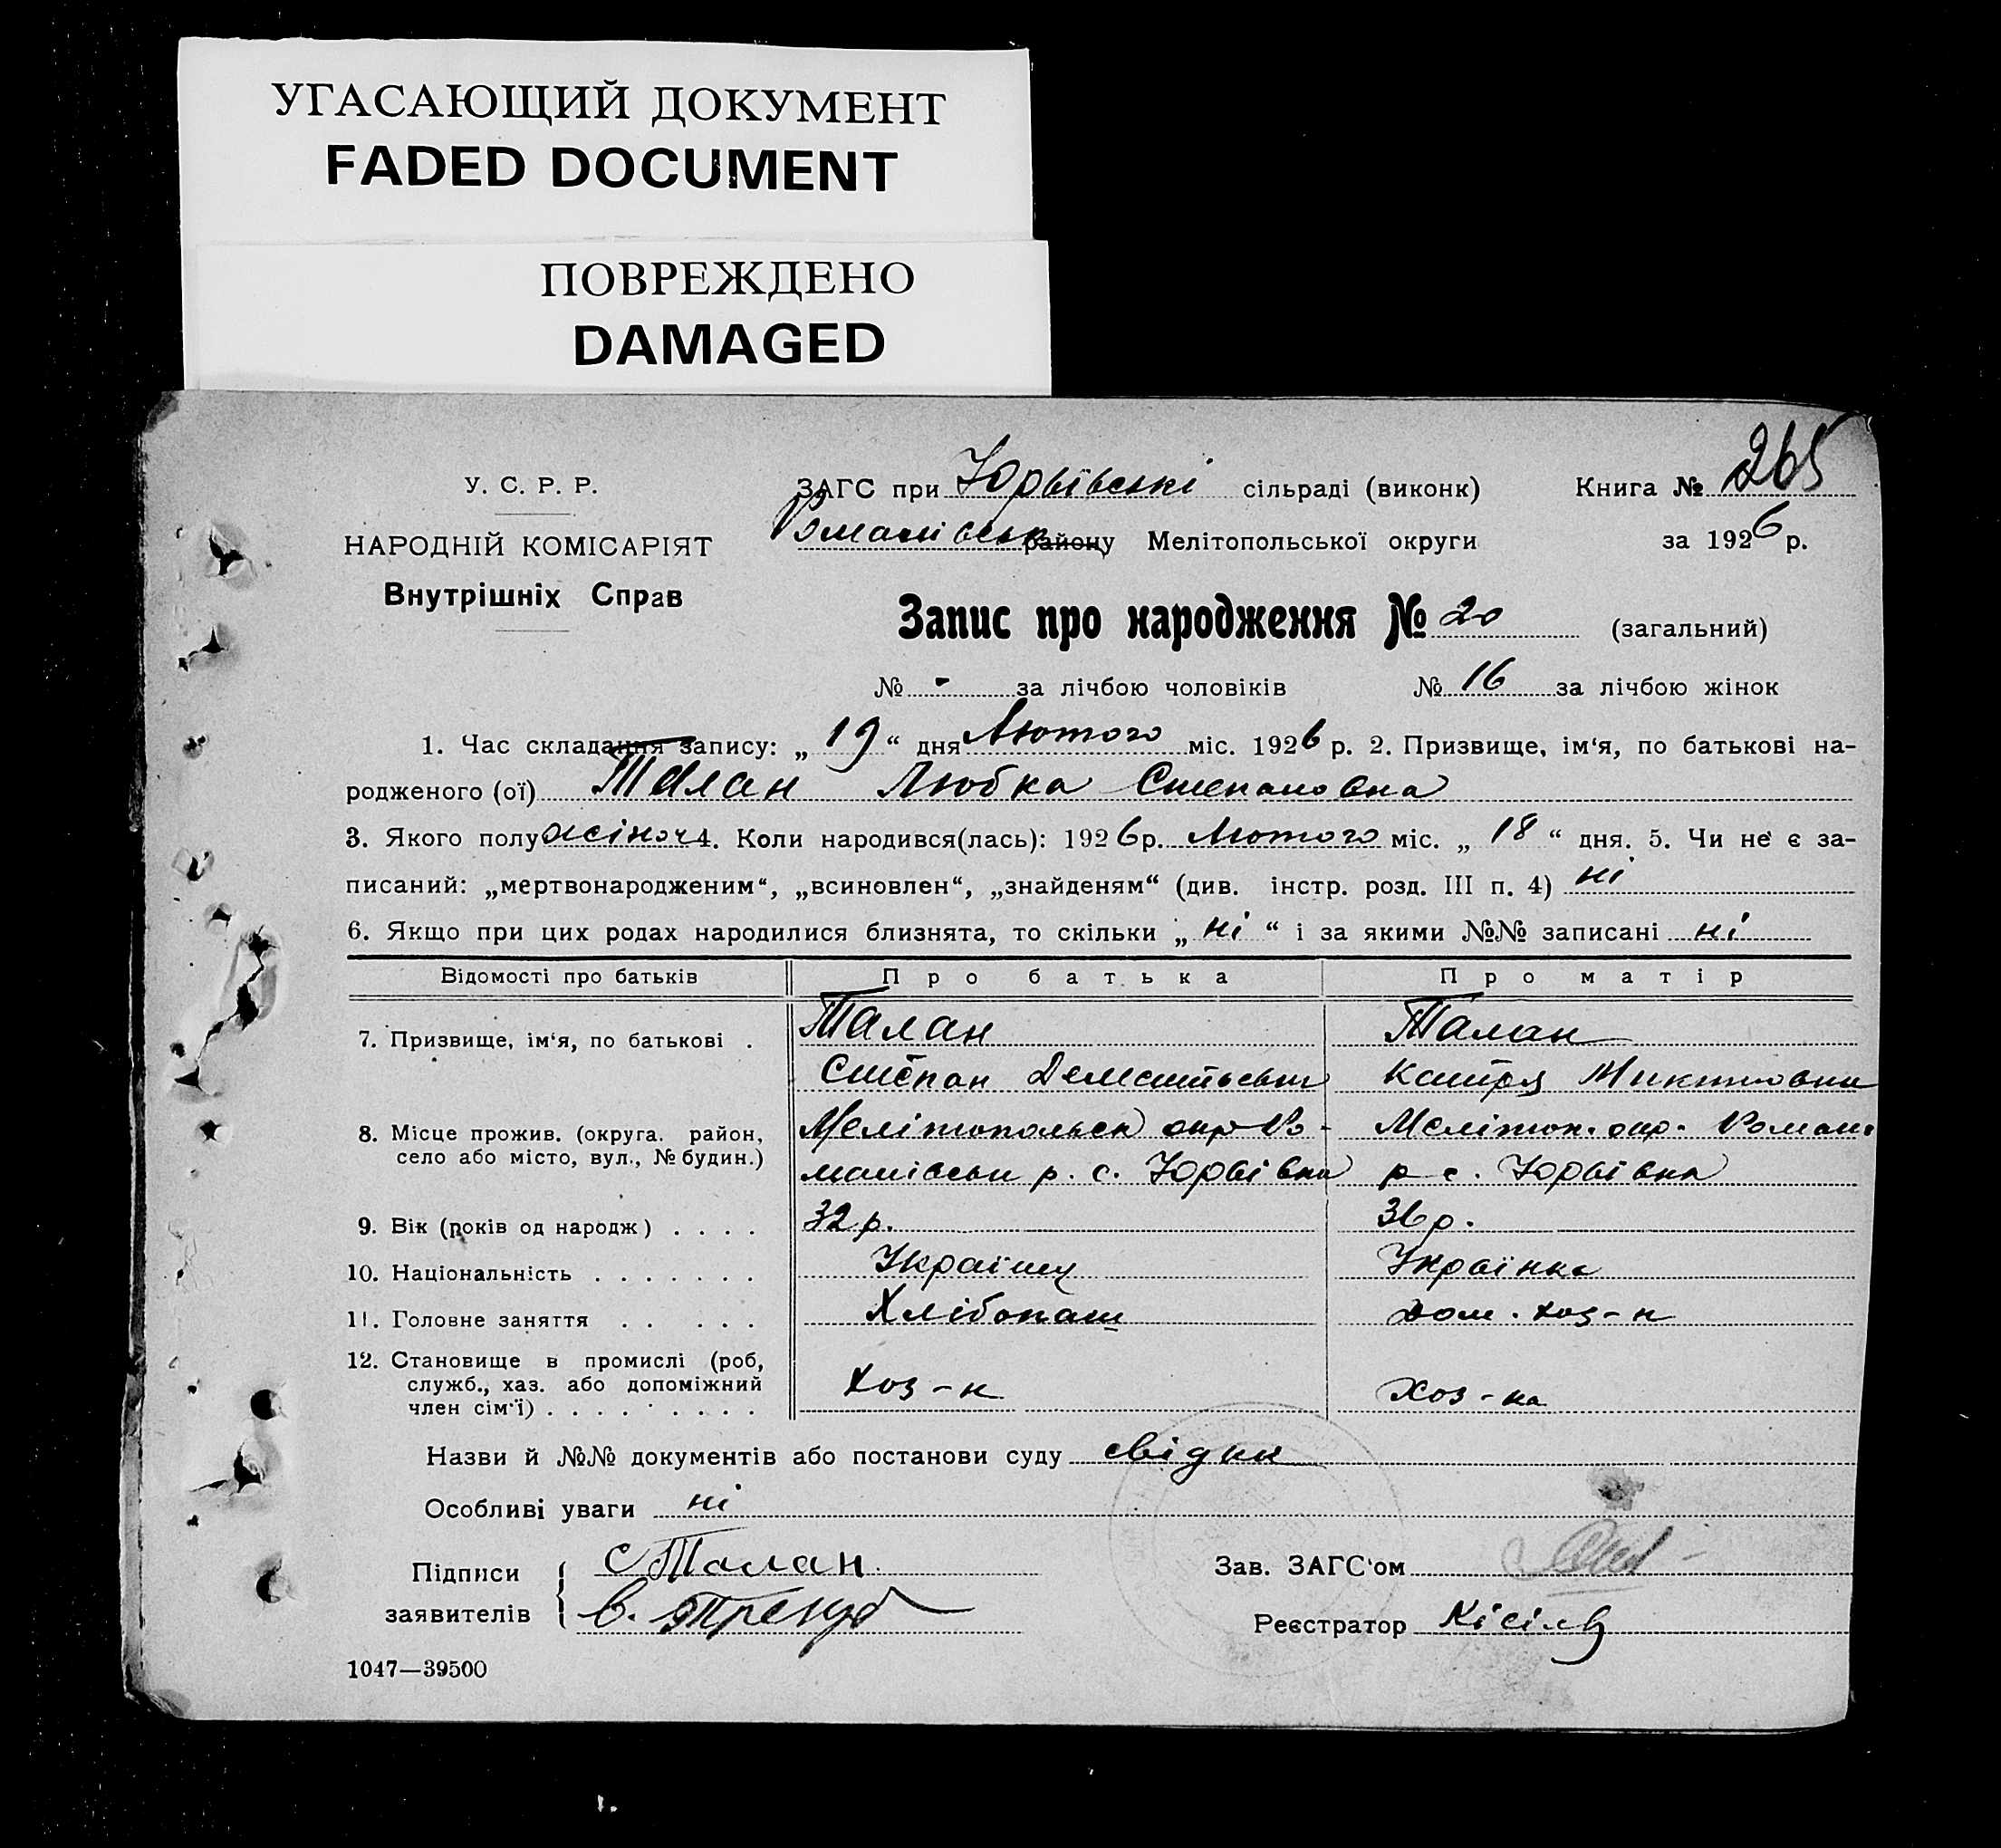 УГАСАЮЩИЙ ДОКУМЕНТ
FADED DOCUMENT
ПОВРЕЖДЕНО
DAMAGED
У. С. Р. Р.
НАРОДНІЙ КОМІСАРІЯТ
Внутрішніх Справ
ЗАГС при Юрвівські сільраді (виконк) Книга № 265
Романівськ району Мелітопольської округи за 1926 р.
Запис про народження № 20 (загальний)
№ - за лічбою чоловіків № 16 за лічбою жінок
1. Час складання запису: „ 19 “ дня Лютого міс. 1926 р. 2. Призвище, ім‘я, по батькові на-
родженого (ої) Талан Любка Степановна
3. Якого полу жіноч 4. Коли народився(лась): 1926р. Лютого міс. „ 18 “ дня. 5. Чи не є за-
писаний: „мертвонародженим“, „всиновлен“, „знайденям“ (див. інстр. розд. III п. 4) ні
6. Якщо при цих родах народилися близнята, то скільки „ ні “ і за якими №№ записані ні
Відомості про батьків Про батька Про матір
7. Призвище, ім‘я, по батькові . Талан Талан
Степан Катря Микитовна
8. Місце прожив. (округа. район, село або місто, вул., № будин.) Мелітопольск окр Ро- Мелітоп. окр. Роман.
манівськ р. с. Юрвівка р с. Юрвівка
9. Вік (років од народж) . . . . 32 р. 36 р.
10. Національність . . . . . . . Українц Українка
11. Головне заняття . . . . . Хлібопаш дом. хоз-к
12. Становище в промислі (роб, служб., хаз. або допоміжний член сім‘ї) . . . . . . . . . хоз-к хоз-ка
Назви й №№ документів або постанови суду свідки
Особливі уваги ні
Підписи С Талан Зав. ЗАГС‘ом
заявителів В. Реєстратор Кісіль
1047—39500